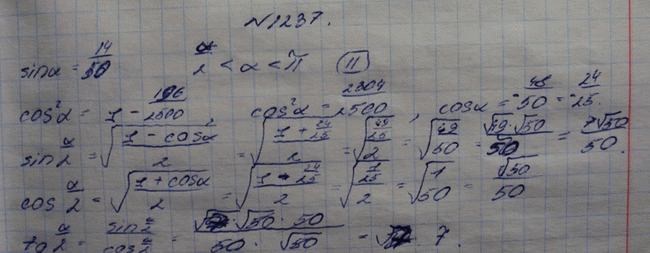 №1237.
sinα = 14/50   α/2 < α < π   II
cos²α = 1 - 196/2500   cos²α = 2304/2500, cosα = -48/50 = -24/25.
sin α/2 = √((1 - cosα)/2) = √((1 + 24/25)/2) = √((49/25)/2) = √(49/50) = √49·√50/50 = 7√50/50.
cos α/2 = √((1 + cosα)/2) = √((1 - 24/25)/2) = √((1/25)/2) = √(1/50) = √50/50
tg α/2 = sin α/2 / cos α/2 = √50 · 50 / 50 · √50 = 7.